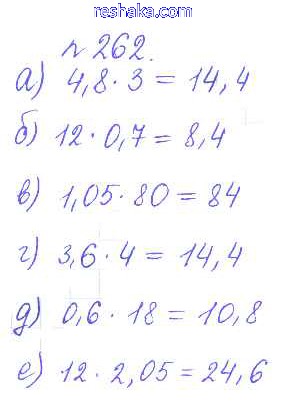 reshaka.com
№ 262.
а) 4,8 · 3 = 14,4
б) 12 · 0,7 = 8,4
в) 1,05 · 80 = 84
г) 3,6 · 4 = 14,4
д) 0,6 · 18 = 10,8
е) 12 · 2,05 = 24,6